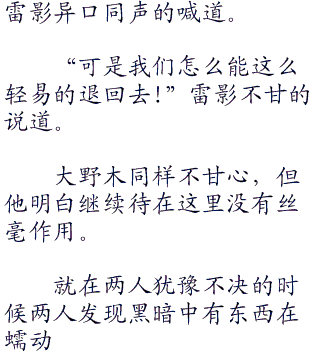 雷影异口同声的喊道。
“可是我们怎么能这么
轻易的退回去!”雷影不甘的
说道。
大野木同样不甘心，但
他明白继续待在这里没有丝
毫作用。
就在两人犹豫不决的时
候两人发现黑暗中有东西在
蠕动